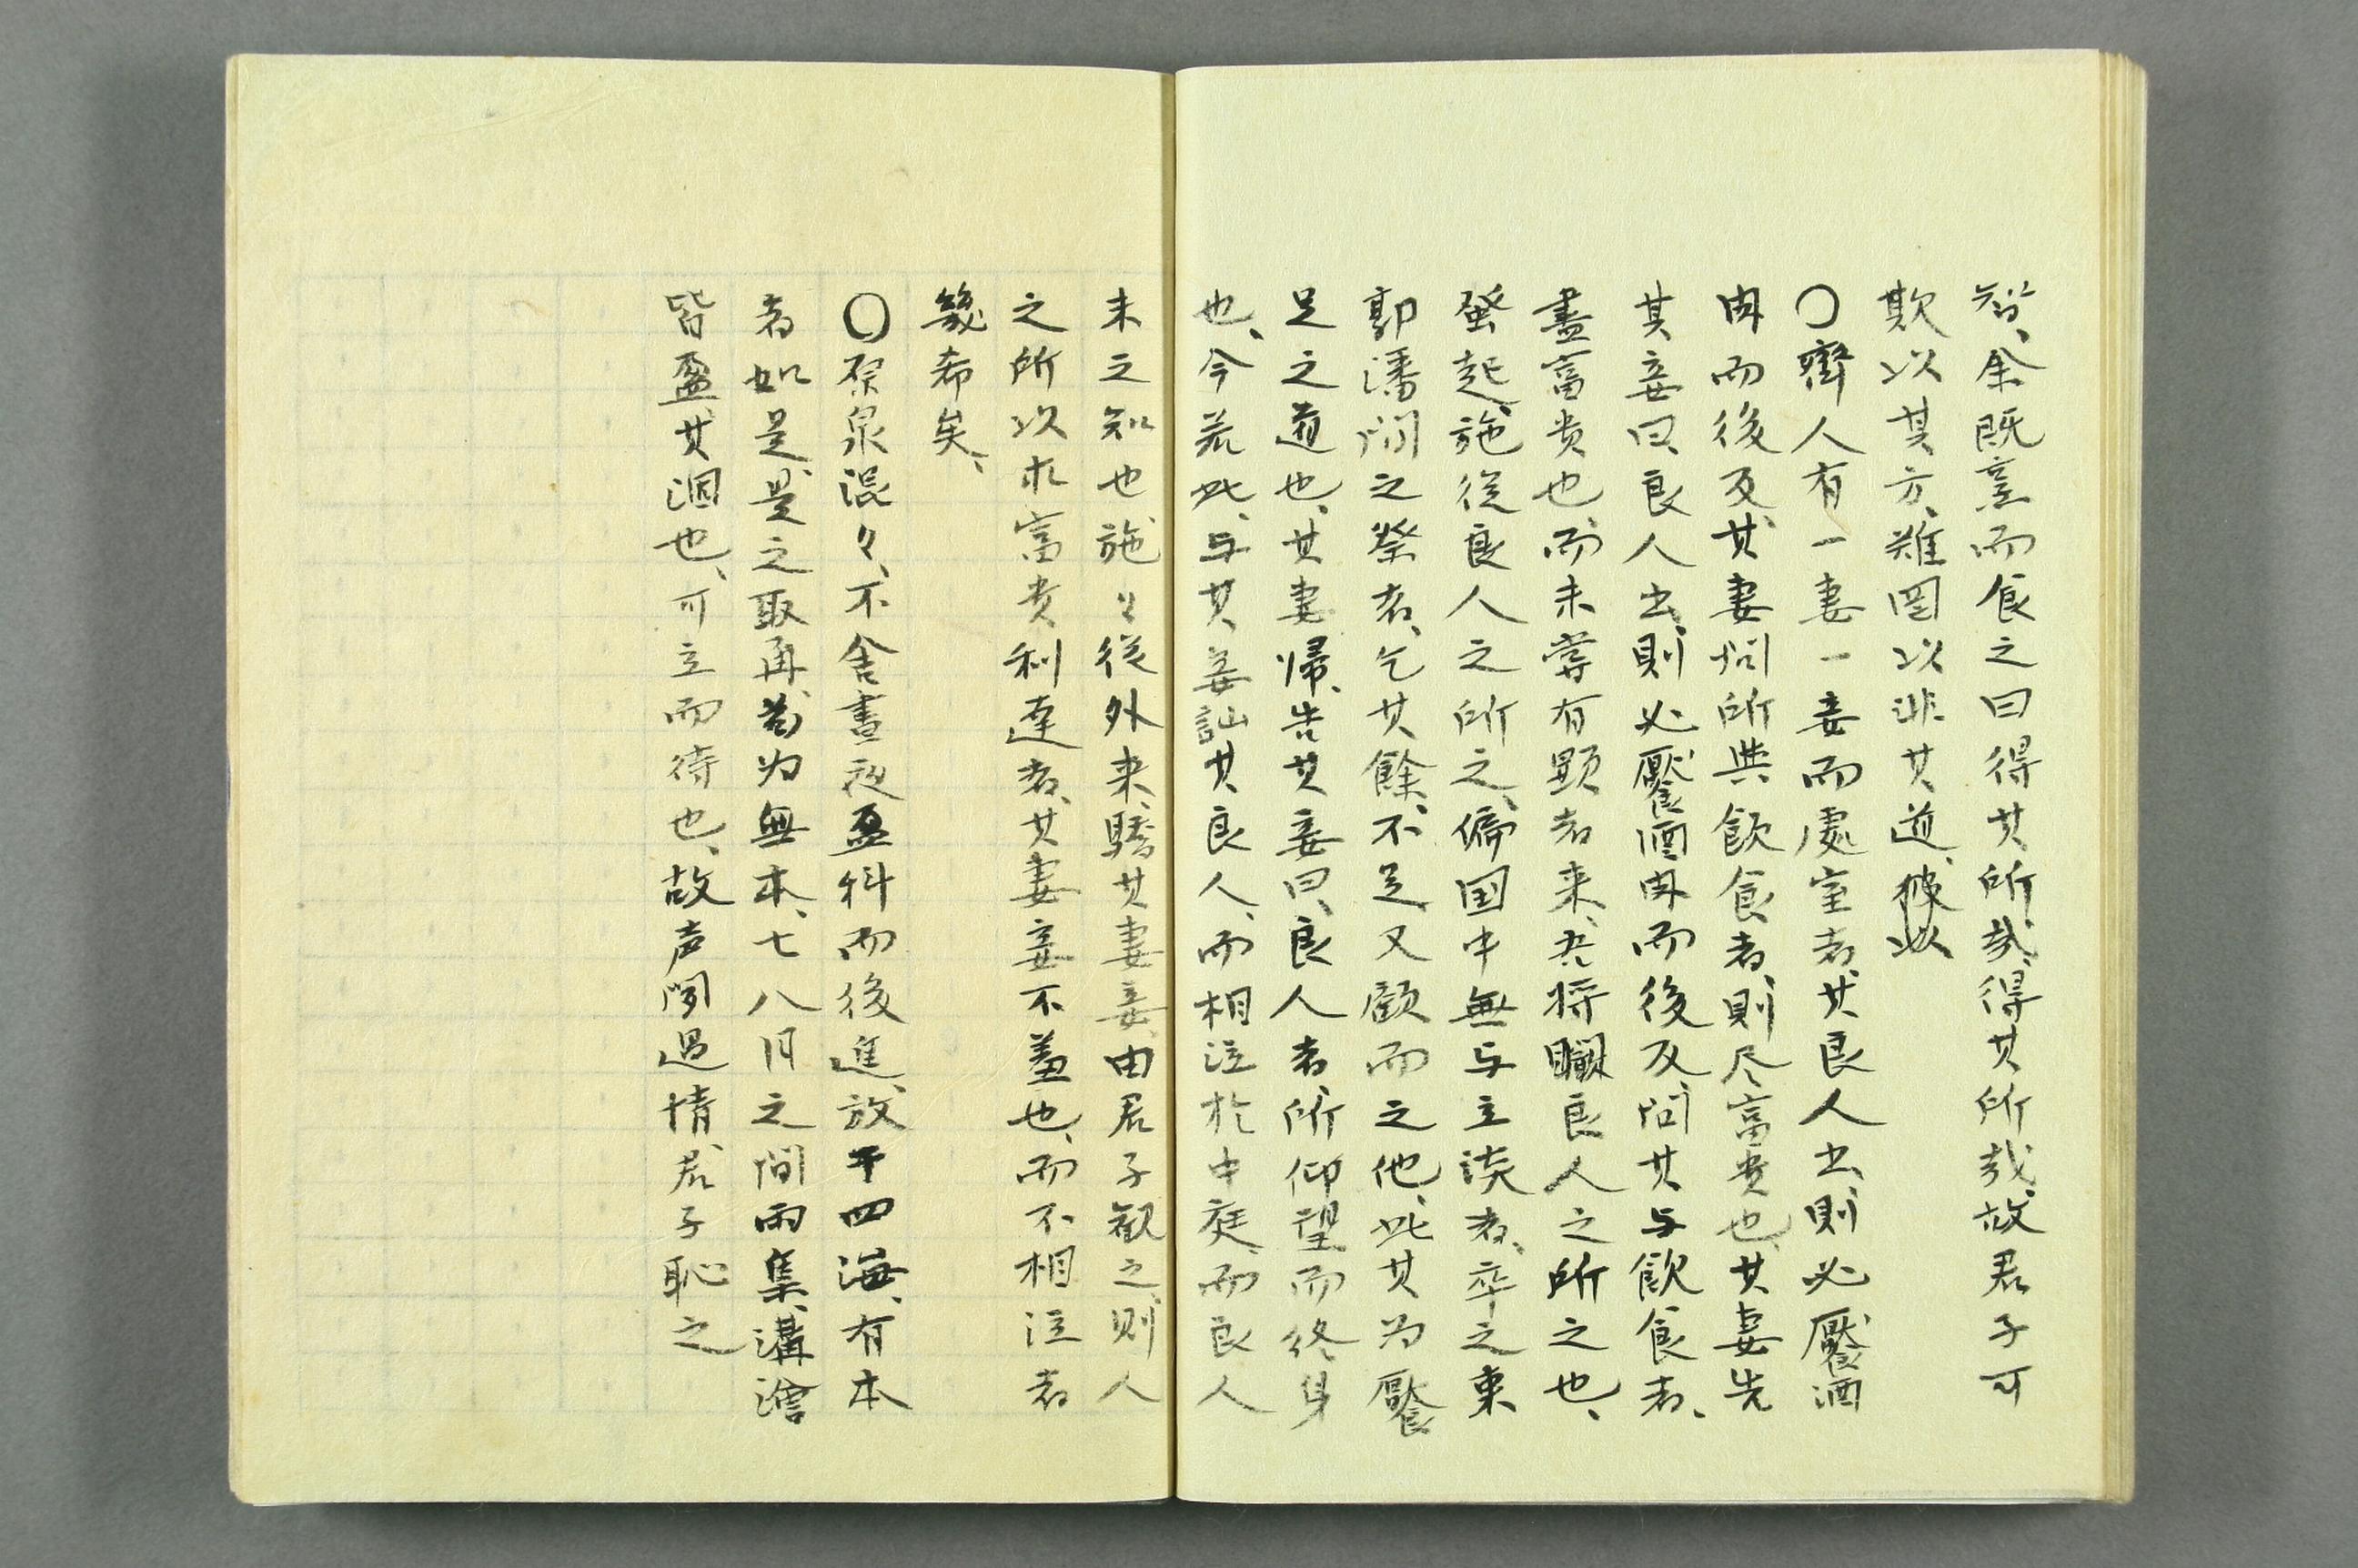 智、余既烹而食之曰得其所哉、得其所哉、故君子可
欺以其方、難罔以非其道、
〇齊人有一妻一妾而處室者、其良人出、則必饜酒
肉而後反、其妻問所與飲食者、則尽富貴也、其妻告
其妾曰、良人出、則必饜酒肉而後反、問其与飲食者、
盡富貴也、而未嘗有顕者来、吾将瞯良人之所之也、
蚤起、施従良人之所之、徧国中無与立談者、卒之東
郭墦間之祭者、乞其餘、不足又顧而之他、此其为饜
足之道也、其妻帰、告其妾曰、良人者、所仰望而终身
也、今若此、与其妾訕其良人、而相泣於中庭、而良人
未之知也、施々従外来、驕其妻妾、由君子観之、則人
之所以求富貴利達者、其妻妾不羞也、而不相泣者
幾希矣、
〇原泉混々、不舎晝夜盈科而後進、放乎四海、有本
者如是、是之取再、苟为無本、七八月之間雨集、溝澮
皆盈、其涸也、可立而待也、故声聞過情、君子恥之